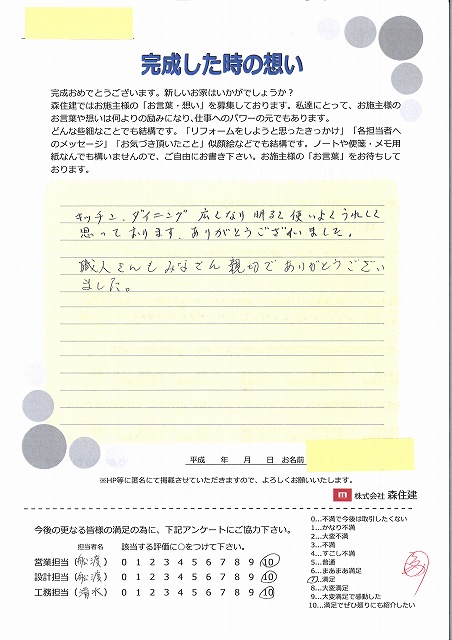 完成した時の想い
完成おめでとうございます。新しいお家はいかがでしょうか？
森住建ではお施主様の「お言葉・想い」を募集しております。私達にとって、お施主様の
お言葉や想いは何よりの励みになり、仕事へのパワーの元でもあります。
どんな些細なことでも結構です。「リフォームをしようと思ったきっかけ」「各担当者へ
のメッセージ」「お気づき頂いたこと」似顔絵などでも結構です。ノートや便箋・メモ用
紙なんでも構いませんので、ご自由にお書き下さい。お施主様の「お言葉」をお待ちして
おります。
キッチン、ダイニング 広くなり 明るく使いよくうれしく
思っております。ありがとうございました。
職人さんも みなさん 親切で ありがとうござい
ました。
平成　年　月　日　お名前
※HP等に匿名にて掲載させていただきますので、よろしくお願いいたします。
m 株式会社 森住建
今後の更なる皆様の満足の為に、下記アンケートにご協力下さい。
担当者名　該当する評価に○をつけて下さい。
営業担当（船渡） 0 1 2 3 4 5 6 7 8 9 10
設計担当（船渡） 0 1 2 3 4 5 6 7 8 9 10
工務担当（清水） 0 1 2 3 4 5 6 7 8 9 10
0…不満で今後は取引したくない
1…かなり不満
2…大変不満
3…不満
4…すこし不満
5…普通
6…まあまあ満足
7…満足
8…大変満足
9…大変満足で感動した
10…満足でぜひ周りにも紹介したい